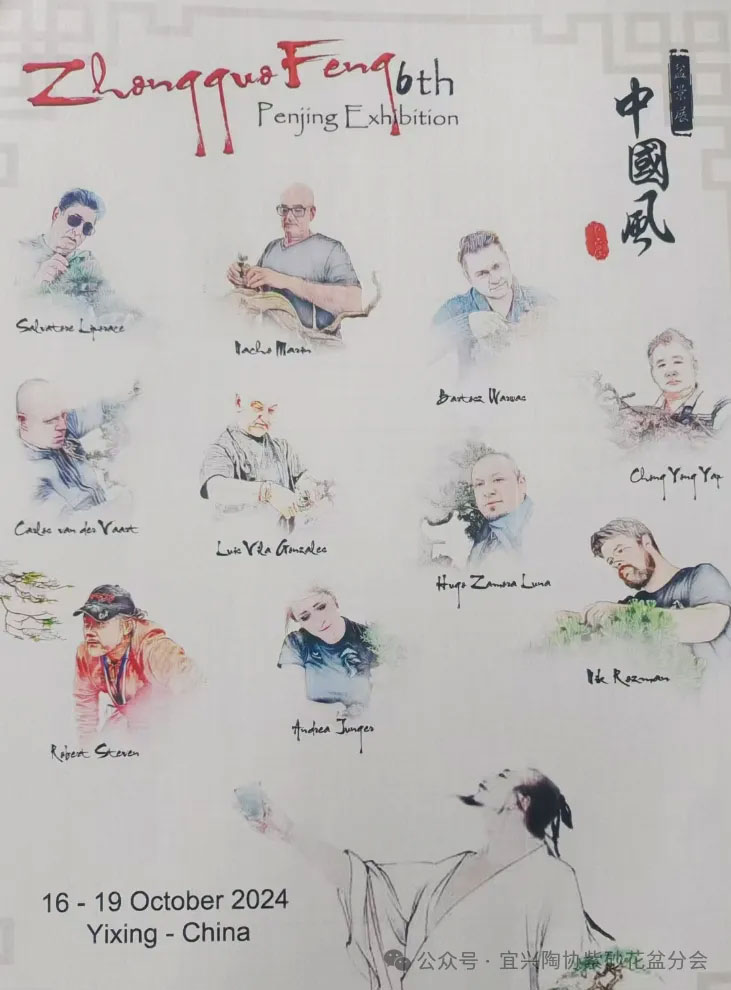 ZhongguoFeng 6th
Penjing Exhibition
盆景展
中國風
Salvatore Liporace
Nacho Marin
Bartosz Warwas
Chong Yong Yap
Carlos van der Vaart
Luis Vila Gonzalez
Hugo Zamora Luna
Nik Rozman
Robert Steven
Andrea Junger
16 - 19 October 2024
Yixing - China
公众号 · 宜兴陶协紫砂花盆分会